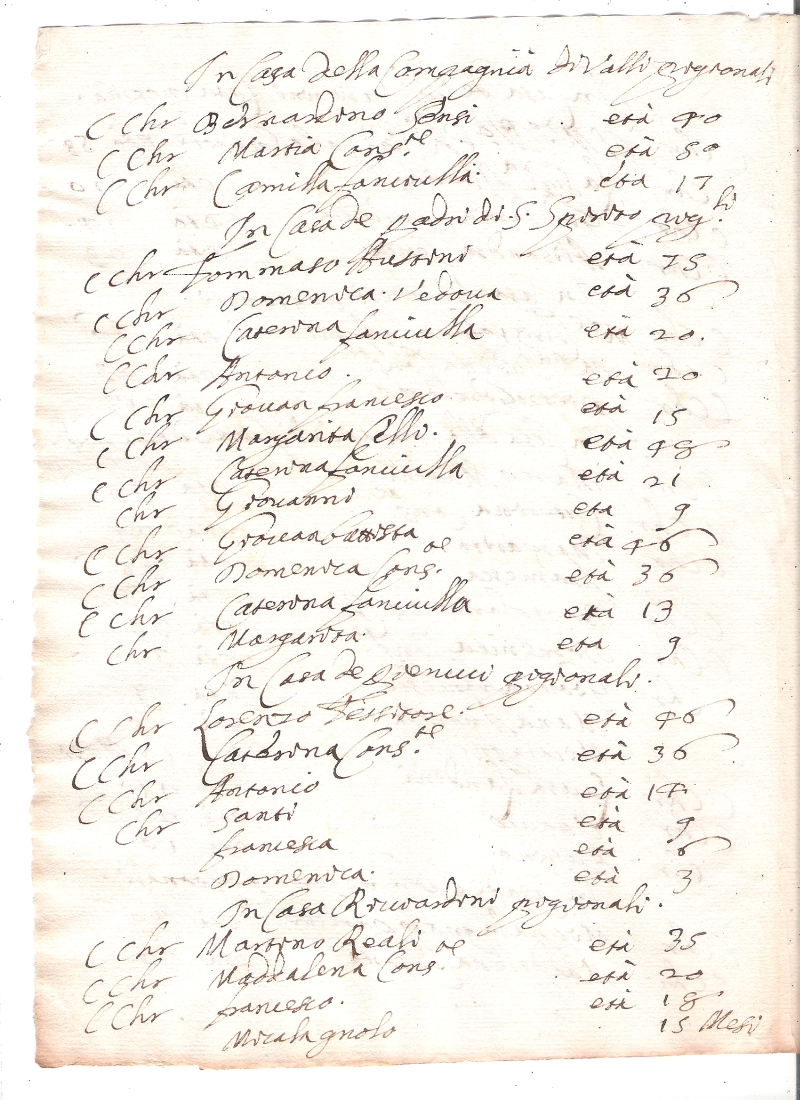 In Casa della Compagnia di Valli pigionali
C Chr Bernardino Sensi età 40
C Chr Martia Cons.te età 50
C Chr Camilla fanciulla. età 17
In Casa de Padri di S. Spirito pig.li
C Chr Tommaso Austini età 75
C Chr Domenica. Vedova età 36
C Chr Caterina fanciulla età 20.
C Chr Antonio. età 20
C Chr Giovan francesco età 15
C Chr Margarita Celli. età 48
C Chr Caterina fanciulla età 21
Chr Giovanni eta 9
C Chr Giovanbattista età 46
C Chr Domenica Cons.te età 36
C Chr Caterina fanciulla età 13
Chr Margarita. eta 9
In Casa de pigionali.
C Chr Lorenzo Tessitore. età 46
C Chr Caterina Cons.te età 36
C Chr Antonio età 14
Chr Santi età 9
francesca età 6
Domenica. età 3
In Casa Ricciardini pigionali.
C Chr Martino Reali età 35
C Chr Maddalena Cons.te età 20
C Chr francesco. età 18
Micalagnolo 15 Mesi